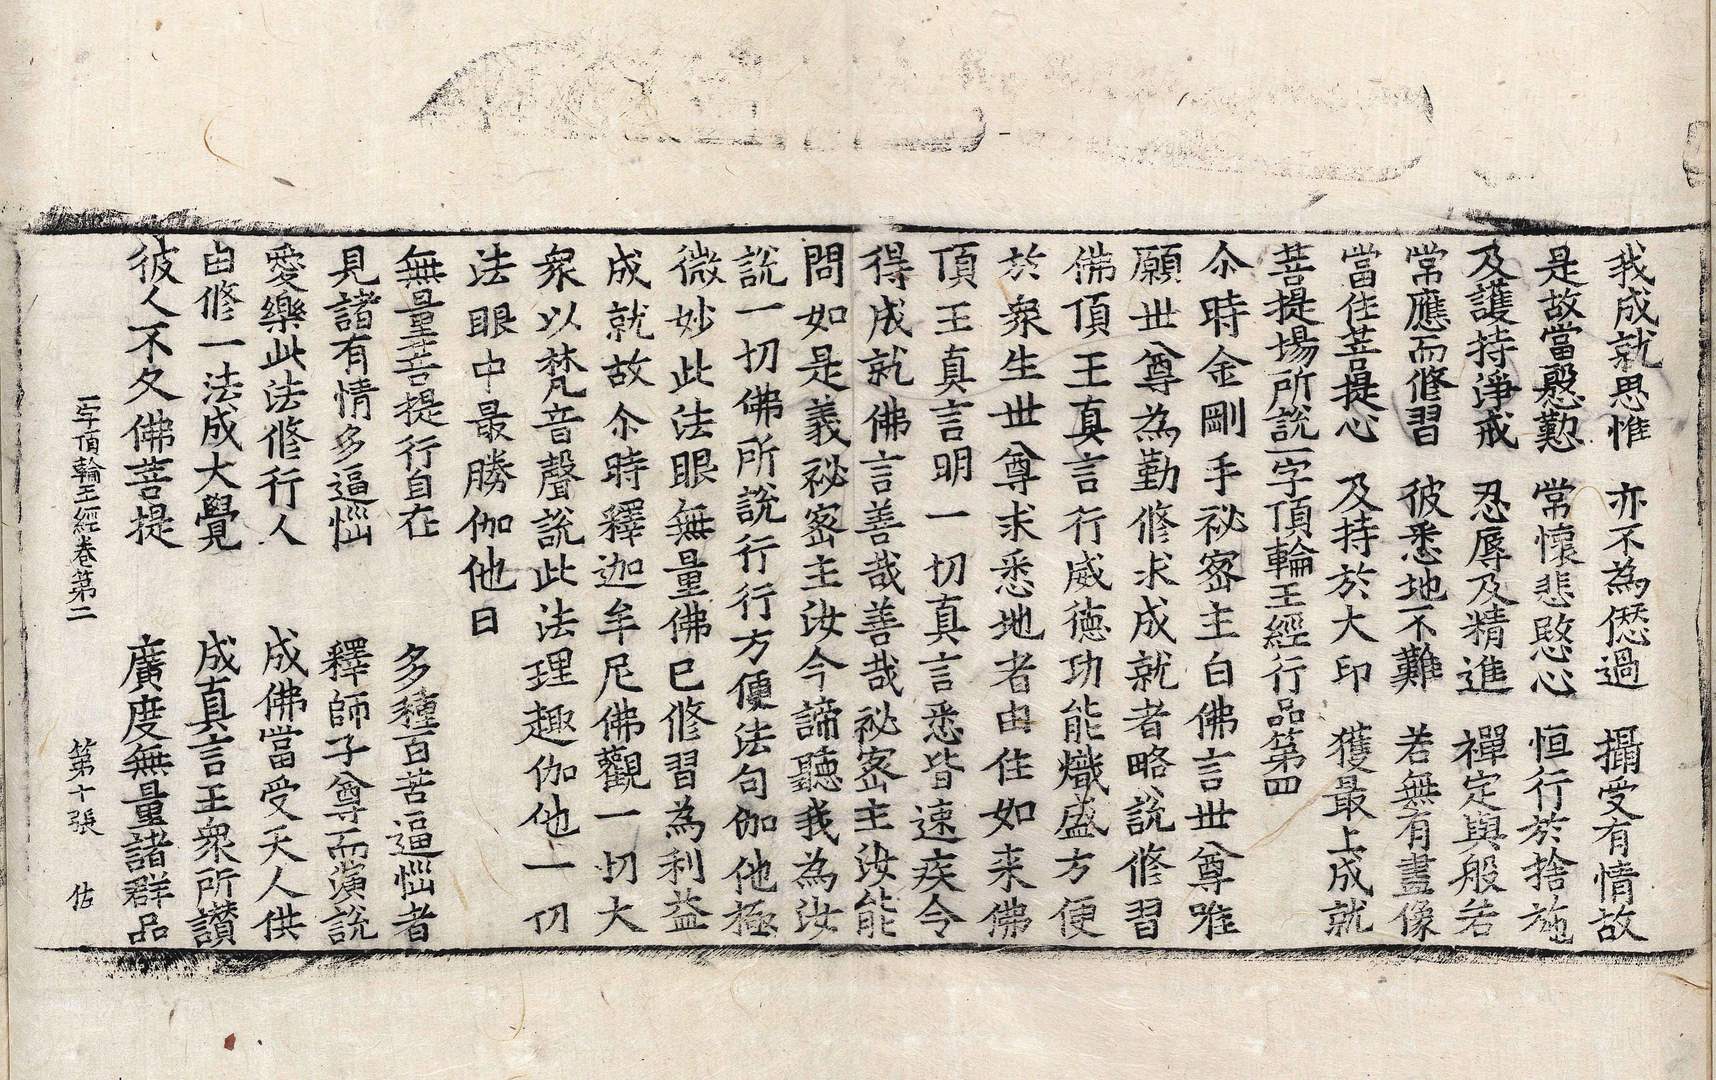 我成就思惟　亦不為僁過　攝受有情故
是故當慇懃　常懷悲愍心　恒行於捨施
及護持淨戒　忍辱及精進　禪定與般若
常應而修習　彼悉地不難　若無有畫像
當住菩提心　及持於大印　獲最上成就
菩提場所說一字頂輪王經行品第四
尒時金剛手祕密主白佛言世尊唯
願世尊為勤修求成就者略說修習
佛頂王真言行威德功能熾盛方便
於衆生世尊求悉地者由住如来佛
頂王真言明一切真言悉皆速疾令
得成就佛言善哉善哉祕密主汝能
問如是義祕密主汝今諦聽我為汝
說一切佛所說行行方便法句伽他極
微妙此法眼無量佛已修習為利益
成就故尒時釋迦牟尼佛觀一切大
衆以梵音聲說此法理趣伽他一切
法眼中最勝伽他曰
無量菩提行自在　多種百苦逼惱者
見諸有情多逼惱　釋師子尊而演說
愛樂此法修行人　成佛當受天人供
由修一法成大覺　成真言王衆所讃
彼人不久佛菩提　廣度無量諸群品
一字頂輪王經卷第二　第十張　佑